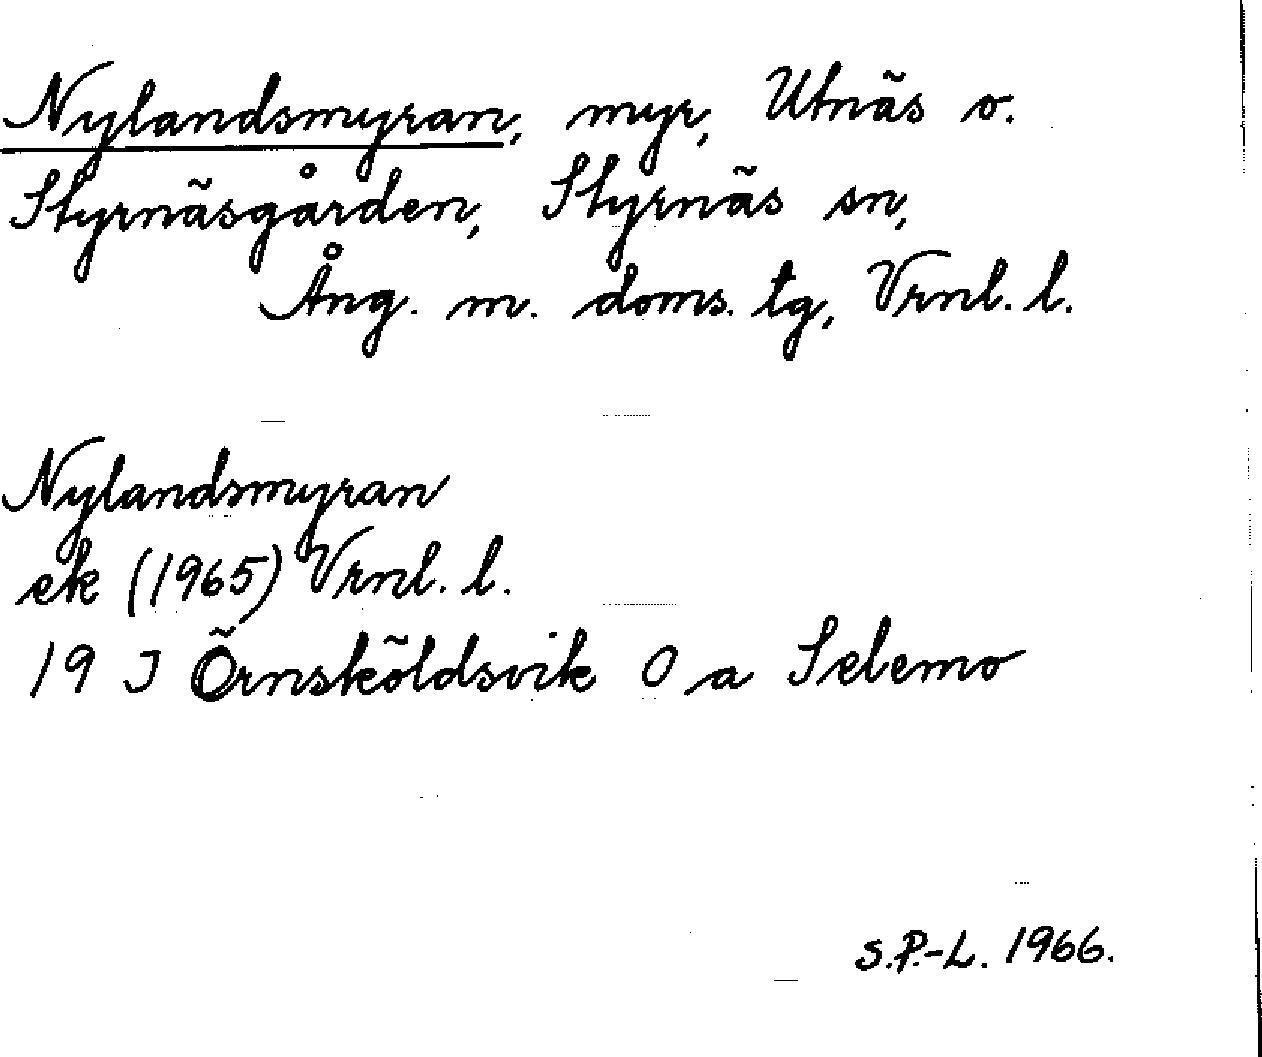 Nylandsmyran, myr, Utnäs o.
Styrnäsgården, Styrnäs sn,
Ång. m. doms. tg, Vrnl. l.
Nylandsmyran
ek (1965) Vrnl. l.
19 J Örnsköldsvik O a Selemo
S.P.-L. 1966.